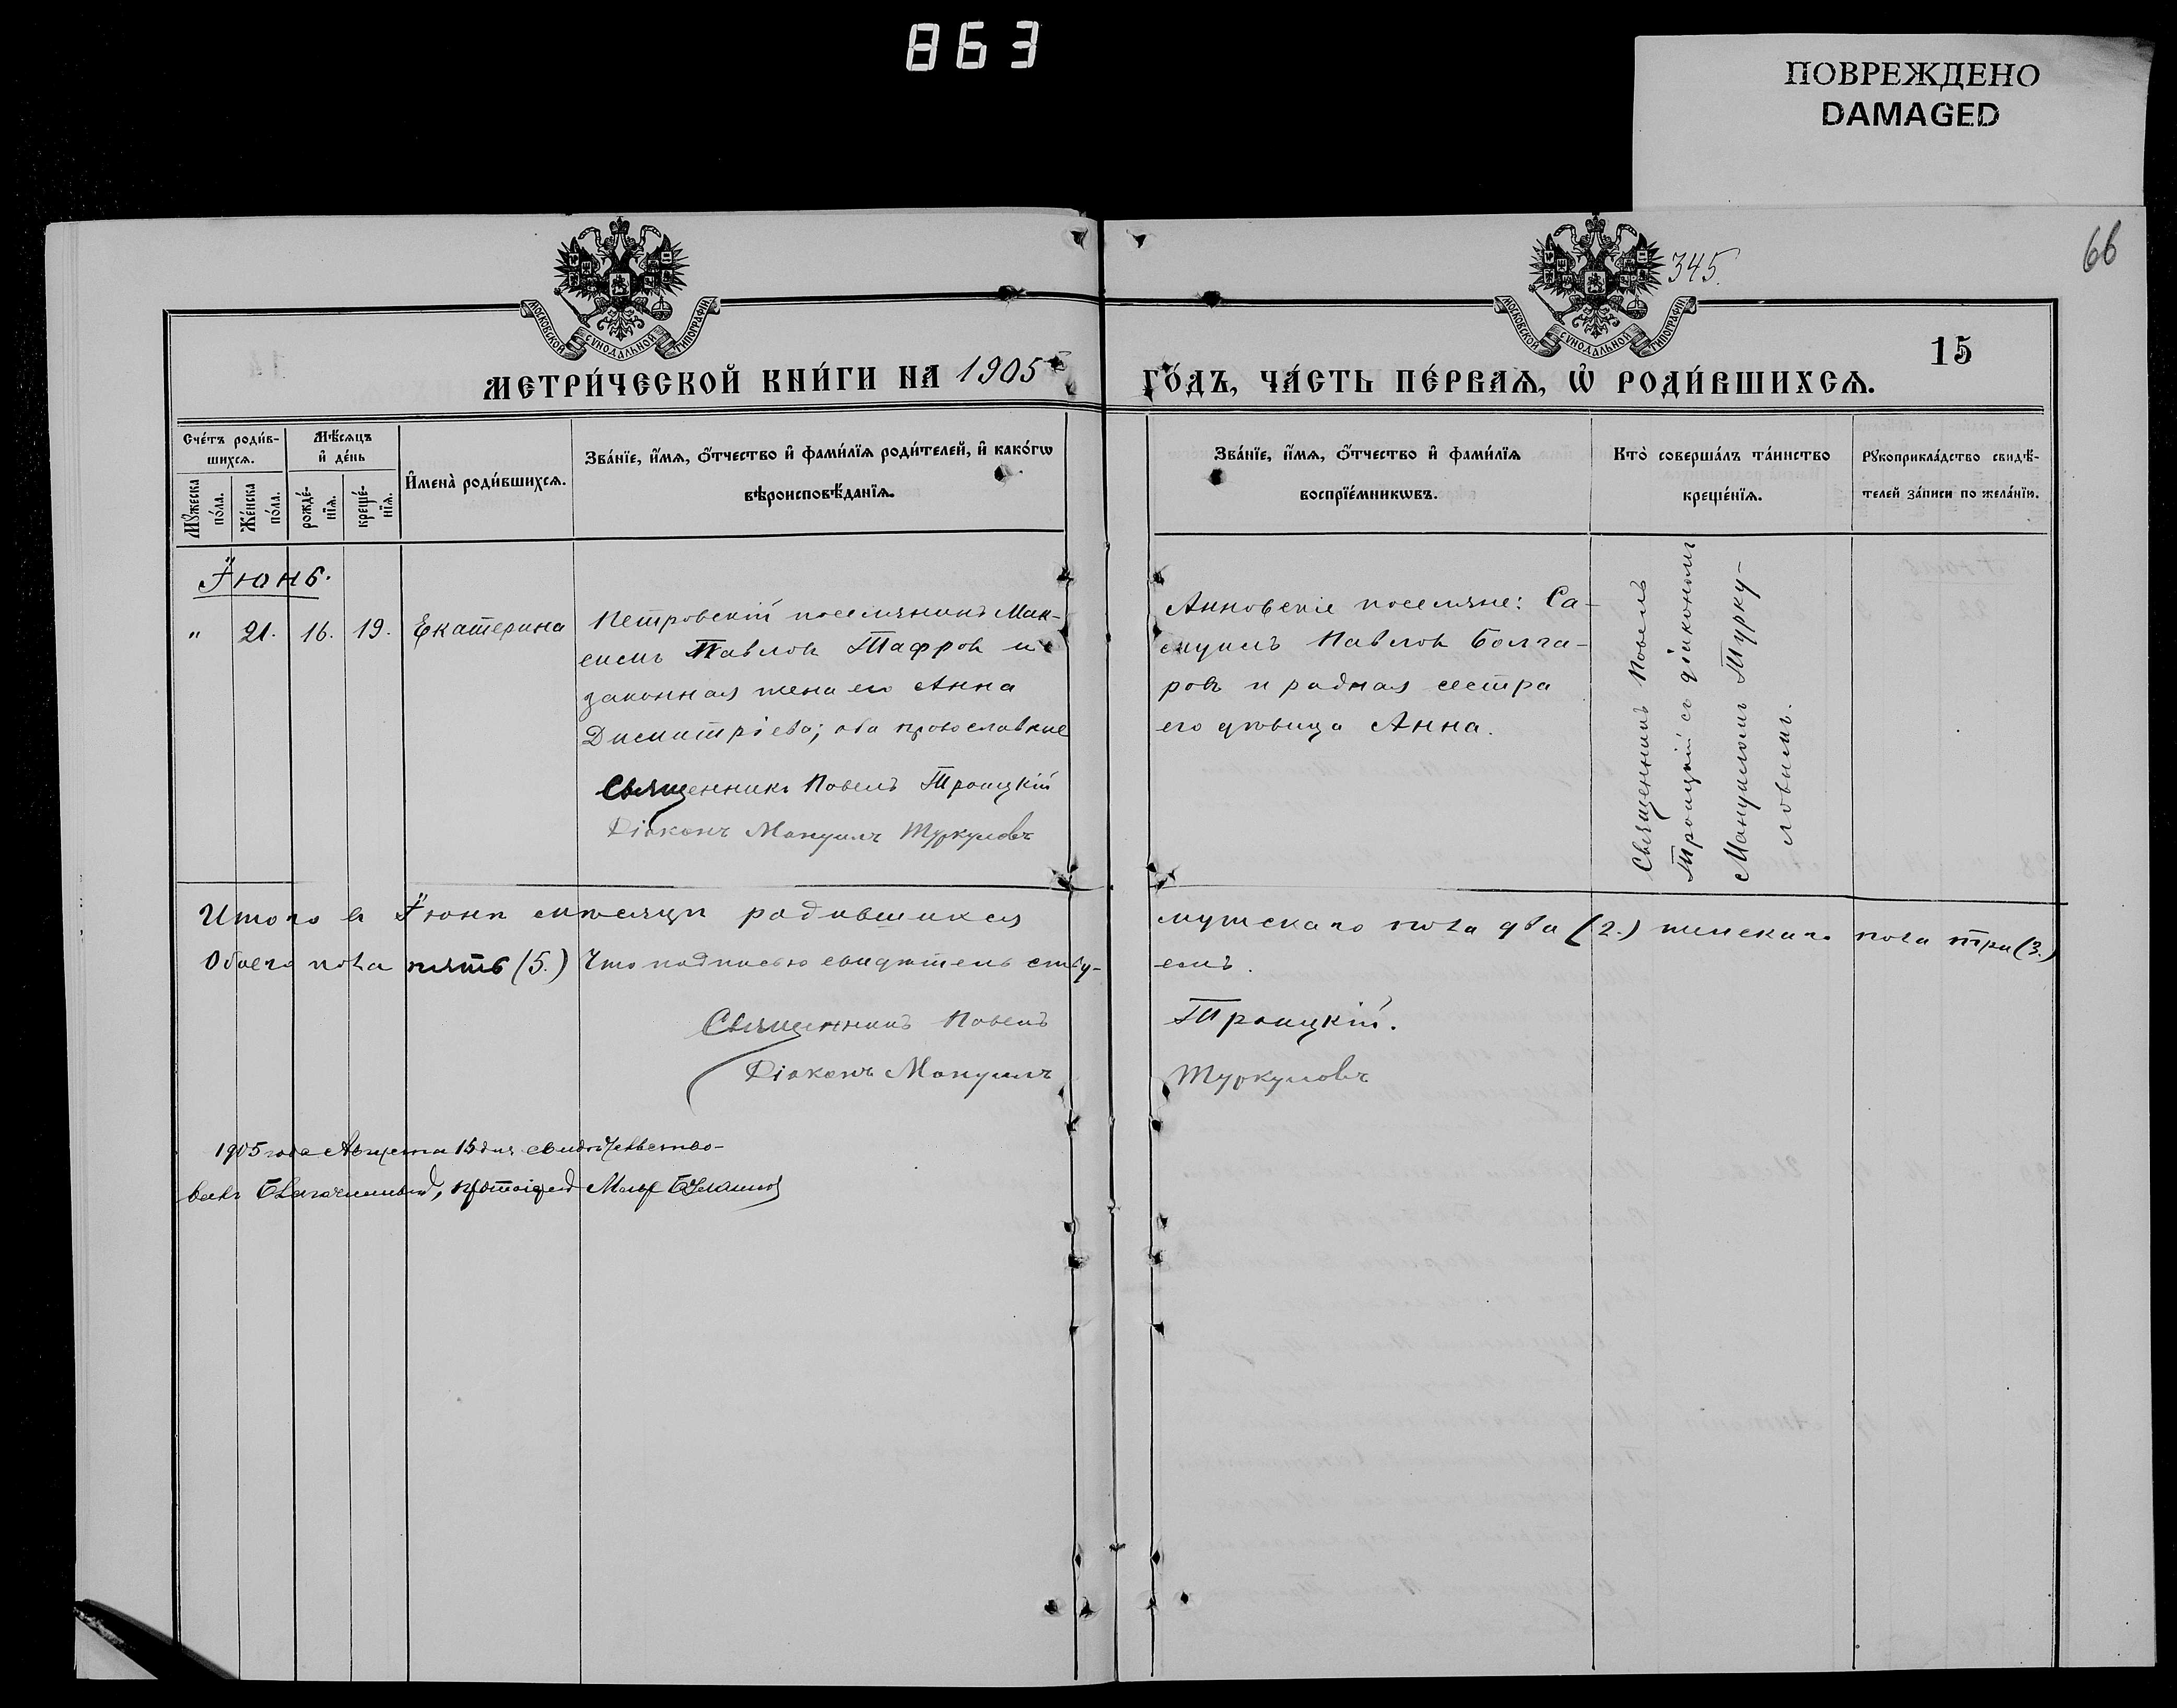 863
ПОВРЕЖДЕНО
DAMAGED
66
345.
15
МОСКОВСКОЙ СѴНОДАЛЬНОЙ ТИПОГРАФІИ
МОСКОВСКОЙ СѴНОДАЛЬНОЙ ТИПОГРАФІИ
МЕТРИ́ЧЕСКОЙ КНИ́ГИ НА 1905 ГО́ДЪ, ЧА́СТЬ ПЕ́РВАѦ, Ѡ҆ РОДИ́ВШИХСѦ.
Сче́тъ роди́в-
шихсѧ.
Мꙋ́жеска
по́ла.
Же́нска
по́ла.
Мѣ́сѧцъ
и҆ де́нь
рожде́-
нїѧ.
креще́-
нїѧ.
И҆мена̀ роди́вшихсѧ.
Зва́нїе, и҆́мѧ, ѻ҆́тчество и҆ фами́лїѧ роди́телей, и҆ како́гѡ
вѣроисповѣ́данїѧ.
Зва́нїе, и҆́мѧ, ѻ҆́тчество и҆ фами́лїѧ
воспрїе́мникѡвъ.
Кто̀ соверша́лъ та́инство
креще́нїѧ.
Рꙋкоприкла́дство свидѣ́-
телей за́писи по жела́нїю.
Іюнь.
" 21. 16. 19. Екатерина
Петровскій поселянинъ Мак-
симъ Павловъ Тафров и
законная жена его Анна
Димитріева; оба православные
Священникъ Павелъ Троицкій
Діаконъ Мануилъ Туркуловъ
Анновскіе поселяне: Са-
муилъ Павловъ Болга-
ровъ и родная сестра
его дѣвица Анна.
Священникъ Павелъ
Троицкій съ діакономъ
Мануиломъ Турку-
ловымъ.
Итого въ Іюнѣ мѣсяцѣ родившихся мужскаго пола два (2.) женскаго пола три (3.)
Обоего пола пять (5.) Что подписью свидѣтельству-
емъ.
Священникъ Павелъ Троицкій.
Діаконъ Мануилъ Туркуловъ
1905 года Августа 15 дня свидѣтельство-
валъ Благочинный, протоіерей